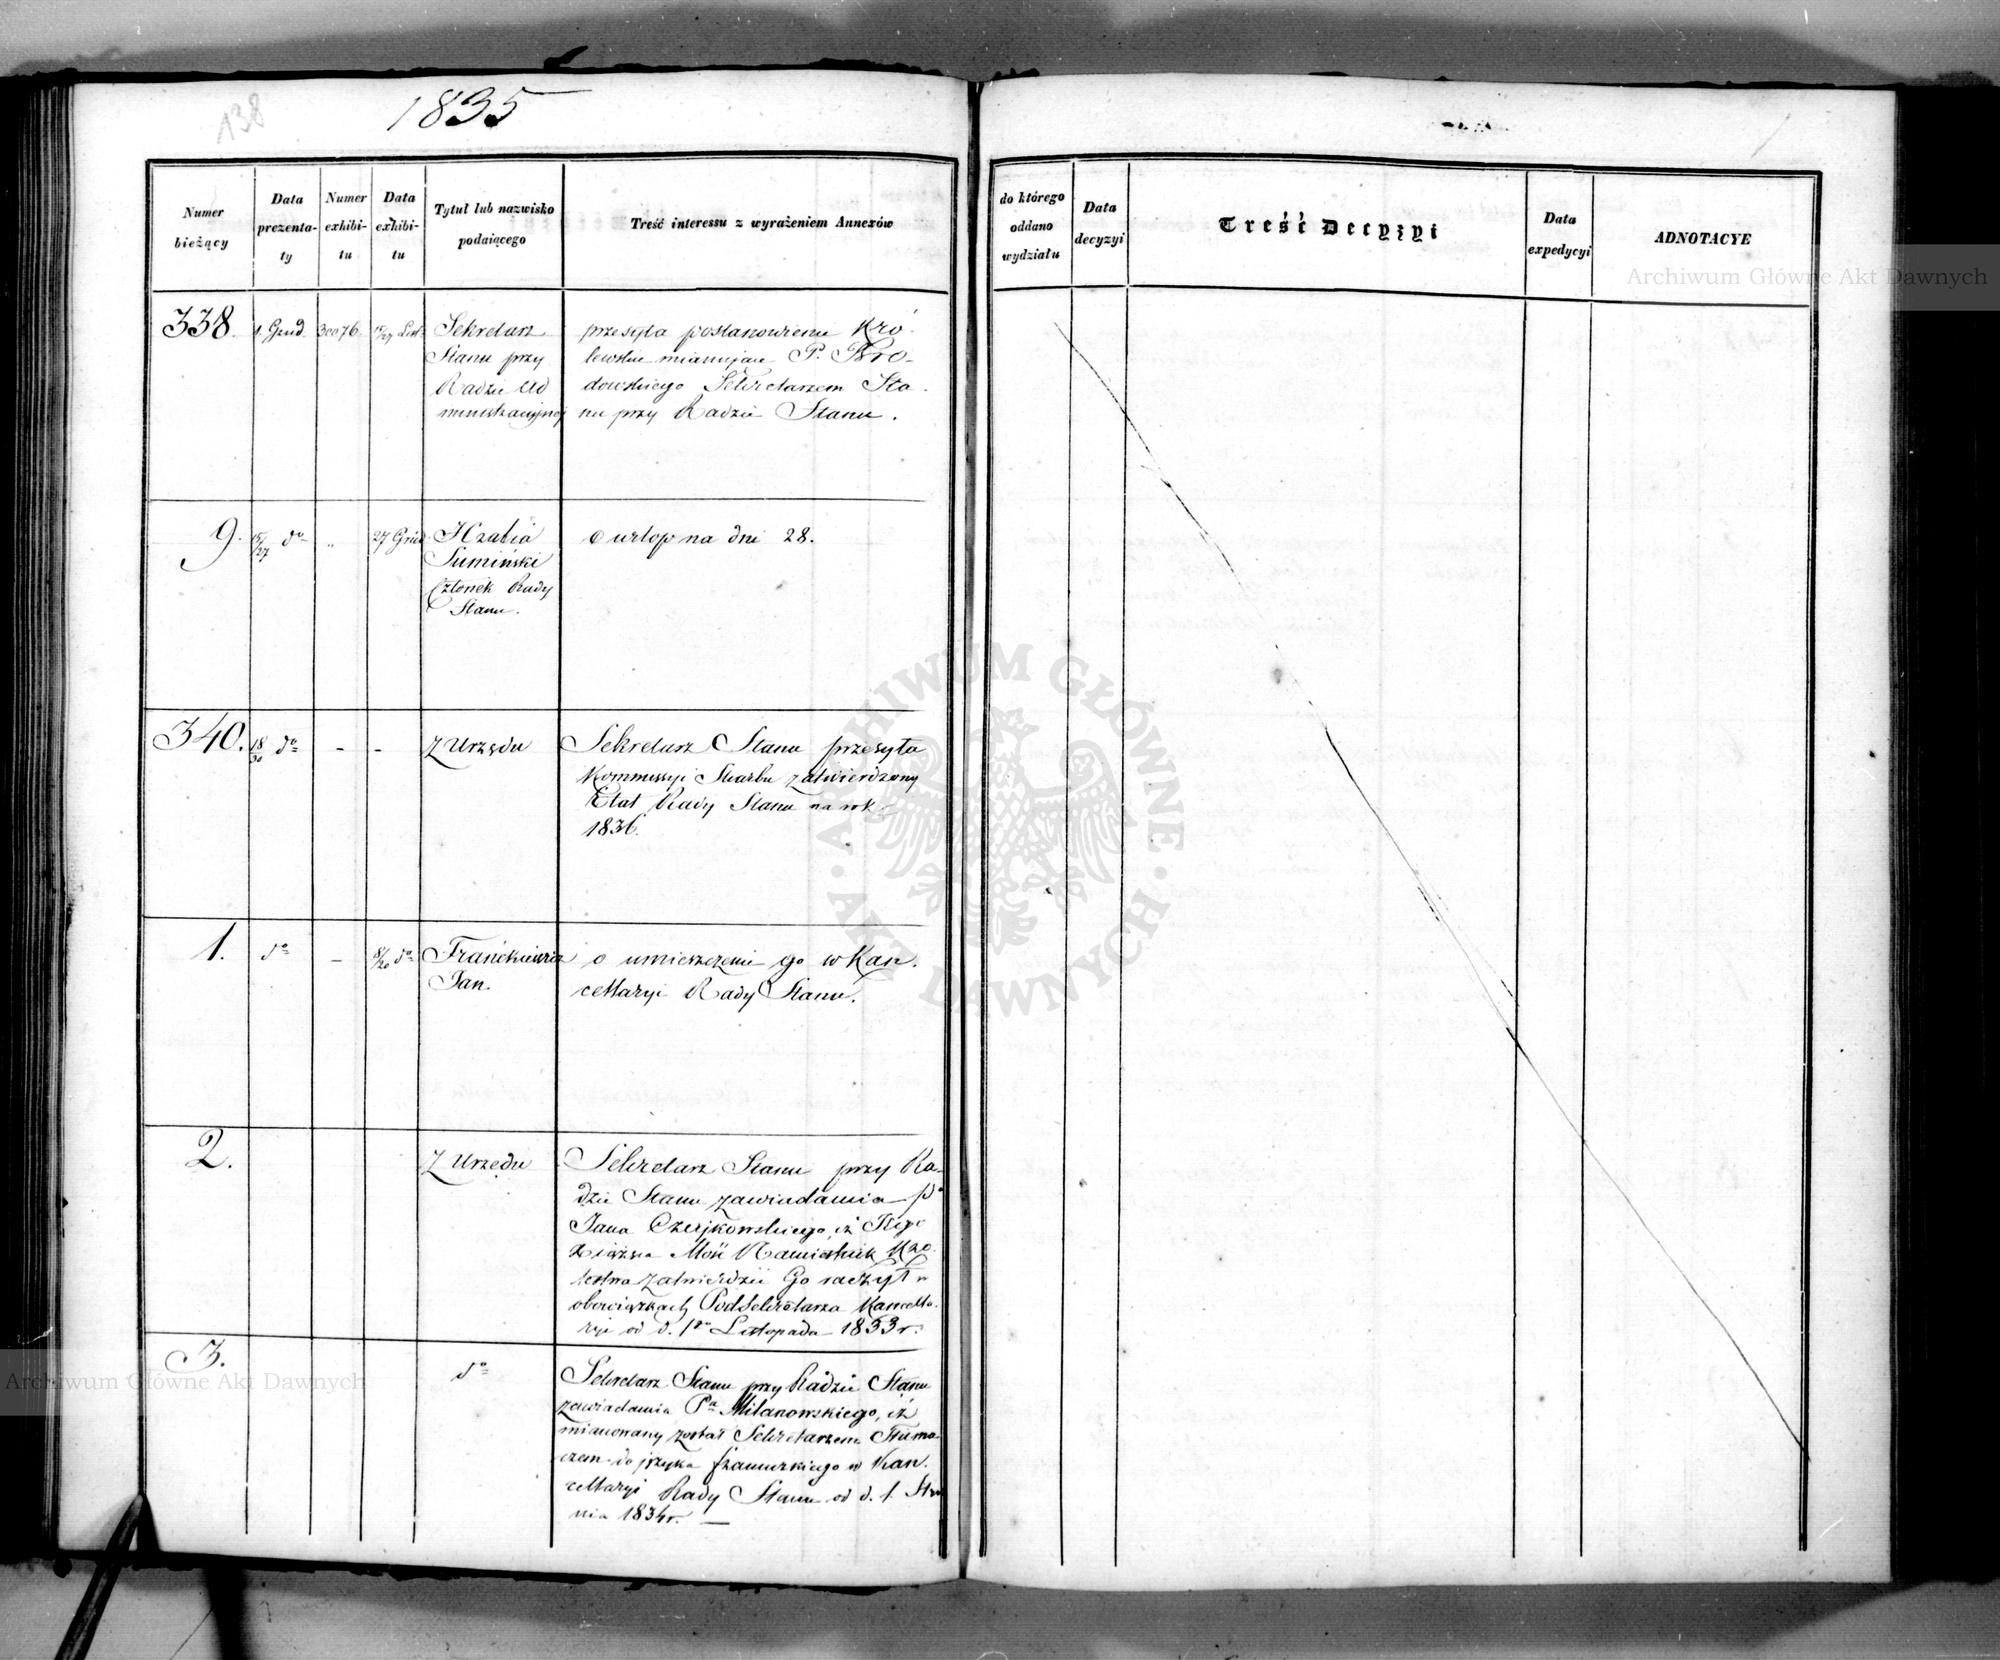 138
1835
Numer bieżący
Data prezenta-ty
Numer exhibi-tu
Data exhibi-tu
Tytuł lub nazwisko podaiącego
Treść interessu z wyrażeniem Annexów
do którego oddano wydziału
Data decyzyi
Treść Decyzyi
Data expedycyi
ADNOTACYE
338.
1. Grud.
30076.
15/27 List.
Sekretarz
Stanu przy
Radzie Ad
ministracyjnej
przesyła postanowienie Kró-
lewskie mianujące P. Bro-
dowskiego Sekretarzem Sta-
nu przy Radzie Stanu.
9.
15/27 do
"
27 Grud
Hrabia
Sumiński
Członek Rady
Stanu.
o urlop na dni 28.
340.
18/30 do
-
-
Z Urzędu
Sekretarz Stanu przesyła
Kommissyi Skarbu zatwierdzony
Etat Rady Stanu na rok
1836.
1.
do
-
8/20 do
Franckiewicz
Jan.
o umieszczenie go w Kan.
cellaryi Rady Stanu.
2.
Z Urzędu
Sekretarz Stanu przy Ra-
dzie Stanu zawiadamia Pa
Jana Czerjkowskiego, iż
Xiążęca Mość Namiestnik Kró.
lestwa zatwierdzić Go raczył w
obowiązkach PodSekretarza Kancella.
ryi od d. 1go Listopada 1833 r.
3.
do
Sekretarz Stanu przy Radzie Stanu
zawiadamia Pa Milanowskiego, iż
mianowany został Sekretarzem Tłuma-
czem do języka francuzkiego w Kan.
cellaryi Rady Stanu od d. 1. Stycz
nia 1834 r.
Archiwum Główne Akt Dawnych
ARCHIWUM GŁÓWNE AKT DAWNYCH
Archiwum Główne Akt Dawnych